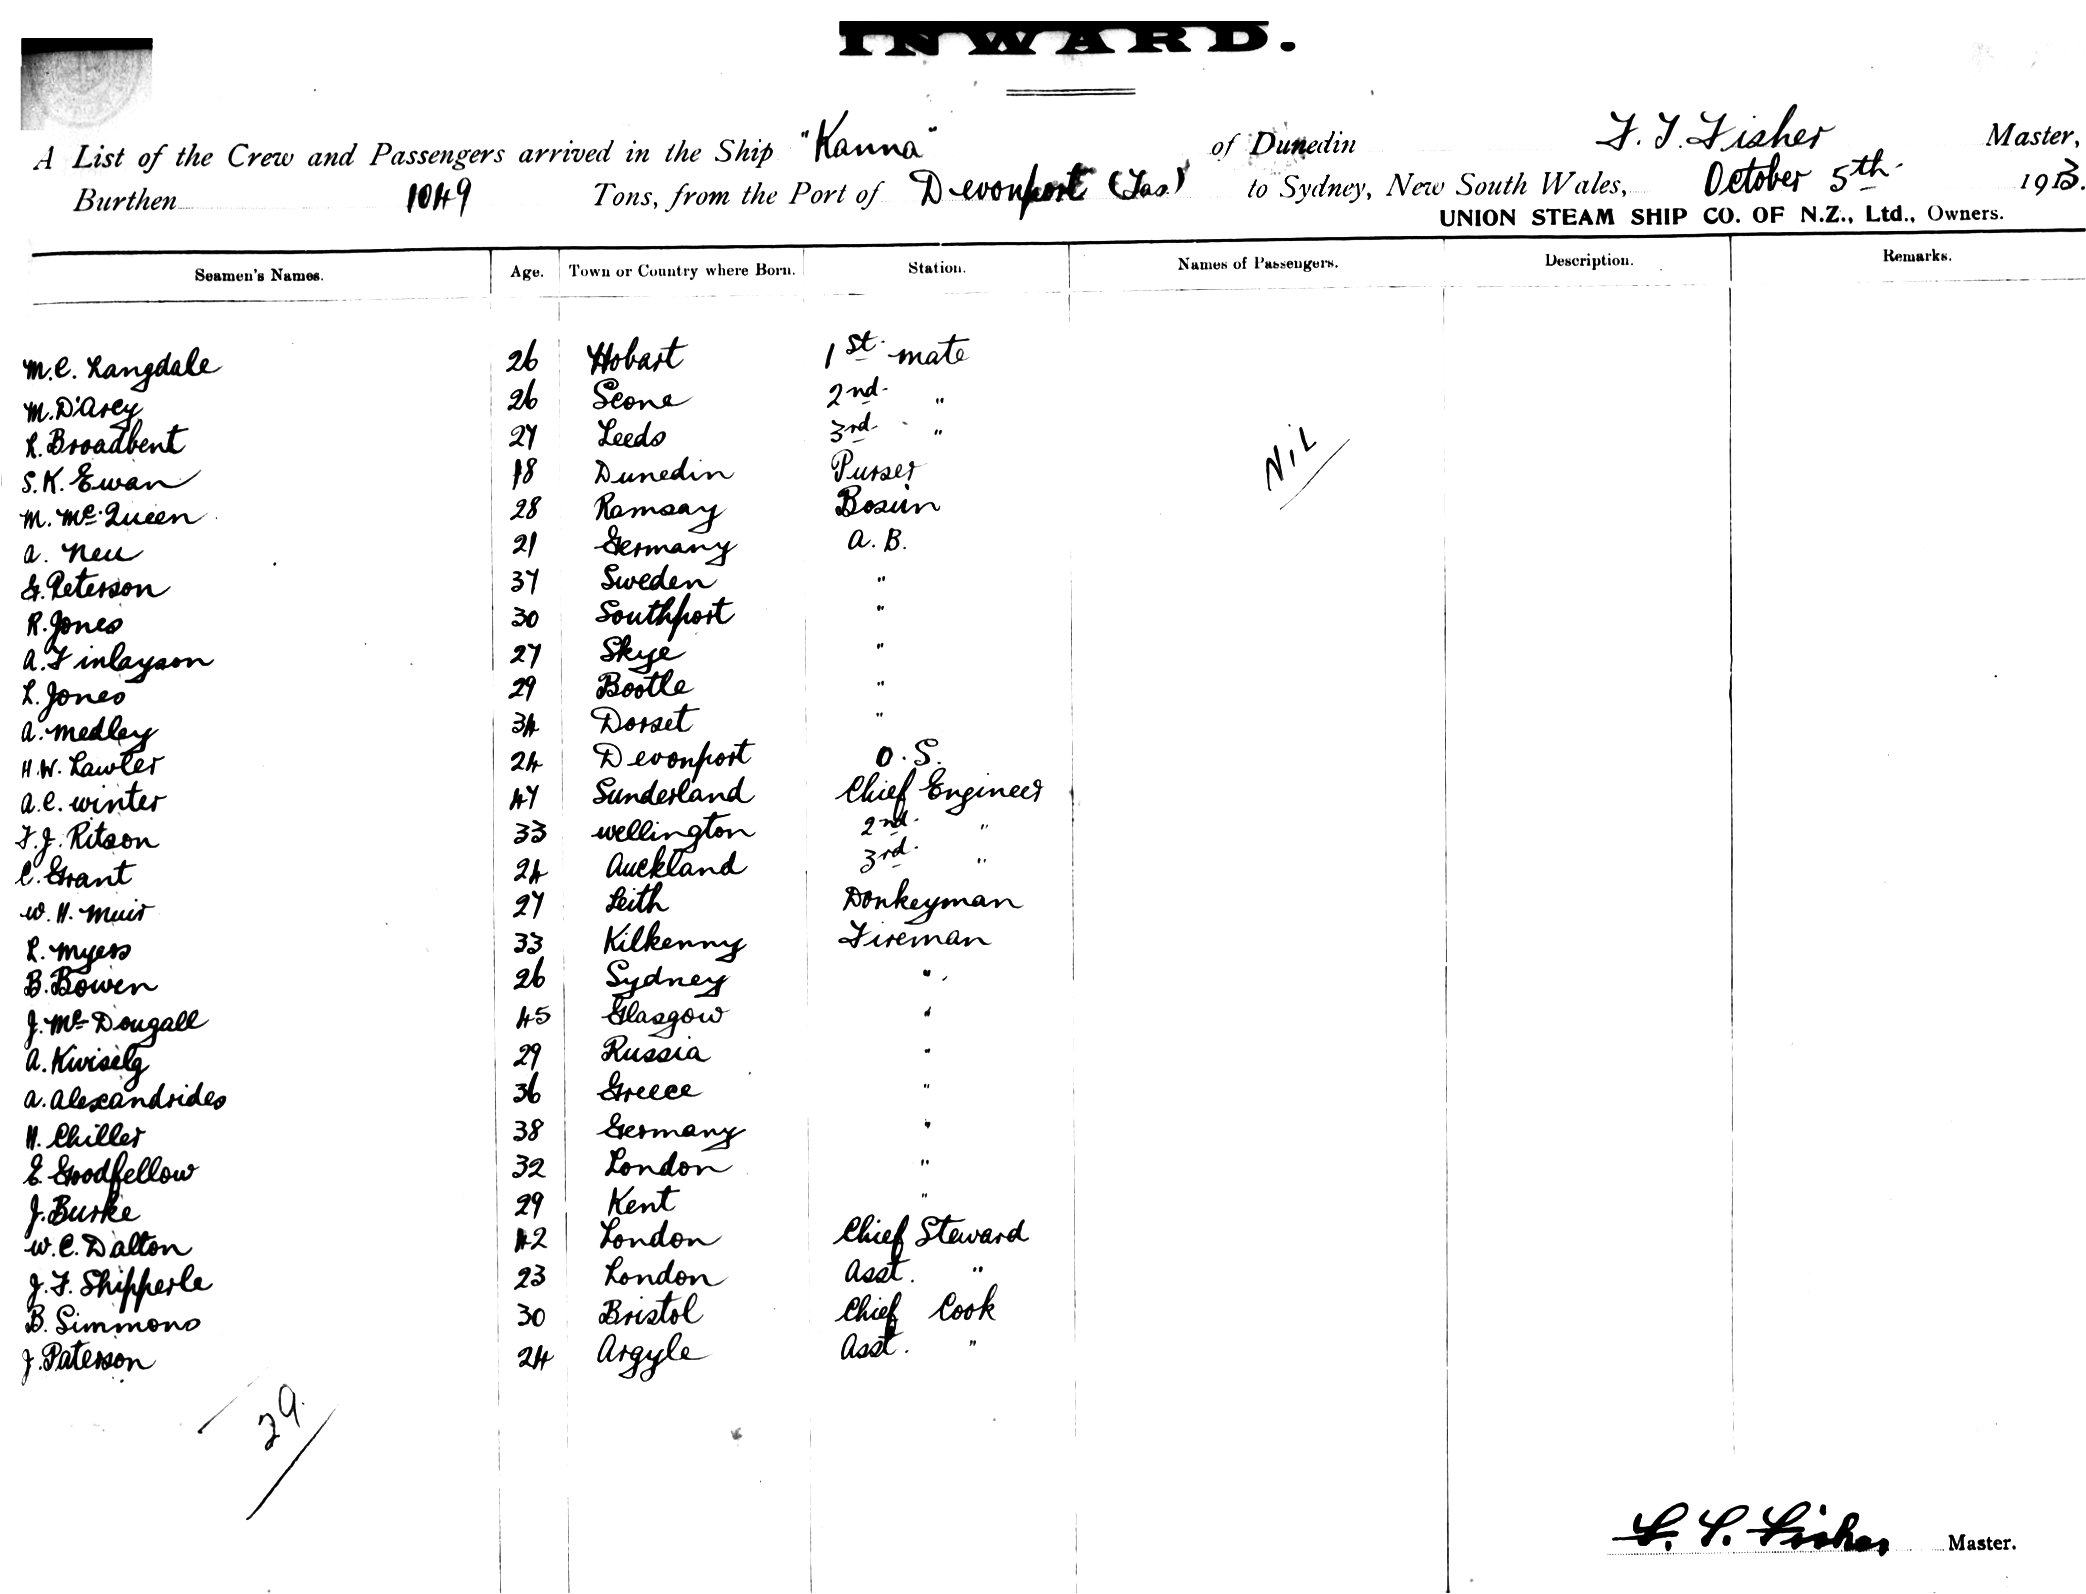 INWARD.
A List of the Crew and Passengers arrived in the Ship "Kanna" of Dunedin F. T. Fisher Master,
Burthen 1049 Tons, from the Port of Devonport (Tas) to Sydney, New South Wales, October 5th 1913.
UNION STEAM SHIP CO. OF N.Z., Ltd., Owners.
Seamen's Names. Age. Town or Country where Born. Station. Names of Passengers. Description. Remarks.
M.C. Langdale 26 Hobart 1st. mate
M. D'Arcy 26 Scone 2nd. "
L. Broadbent 27 Leeds 3rd. "
Nil
S.K. Ewan 18 Dunedin Purser
M. Mc.Queen 28 Ramsay Bosun
A. Neu 21 Germany A.B.
G. Peterson 37 Sweden "
R. Jones 30 Southport "
A. Finlayson 27 Skye "
L. Jones 29 Bootle "
A. Medley 34 Dorset "
H.W. Lawler 24 Devonport O.S.
A.C. Winter 47 Sunderland Chief Engineer
F.J. Ritson 33 Wellington 2nd. "
C. Grant 24 Auckland 3rd. "
W.H. Muir 27 Leith Donkeyman
L. Myers 33 Kilkenny Fireman
B. Bowen 26 Sydney "
J. Mc Dougall 45 Glasgow "
A. 29 Russia "
A. Alexandrides 36 Greece "
H. Chiller 38 Germany "
E. Goodfellow 32 London "
J. Burke 29 Kent "
W.C. Dalton 42 London Chief Steward
J.F. Shipperle 23 London Asst. "
B. Simmons 30 Bristol Chief Cook
J. Paterson 24 Argyle Asst. "
29
F. T. Fisher Master.